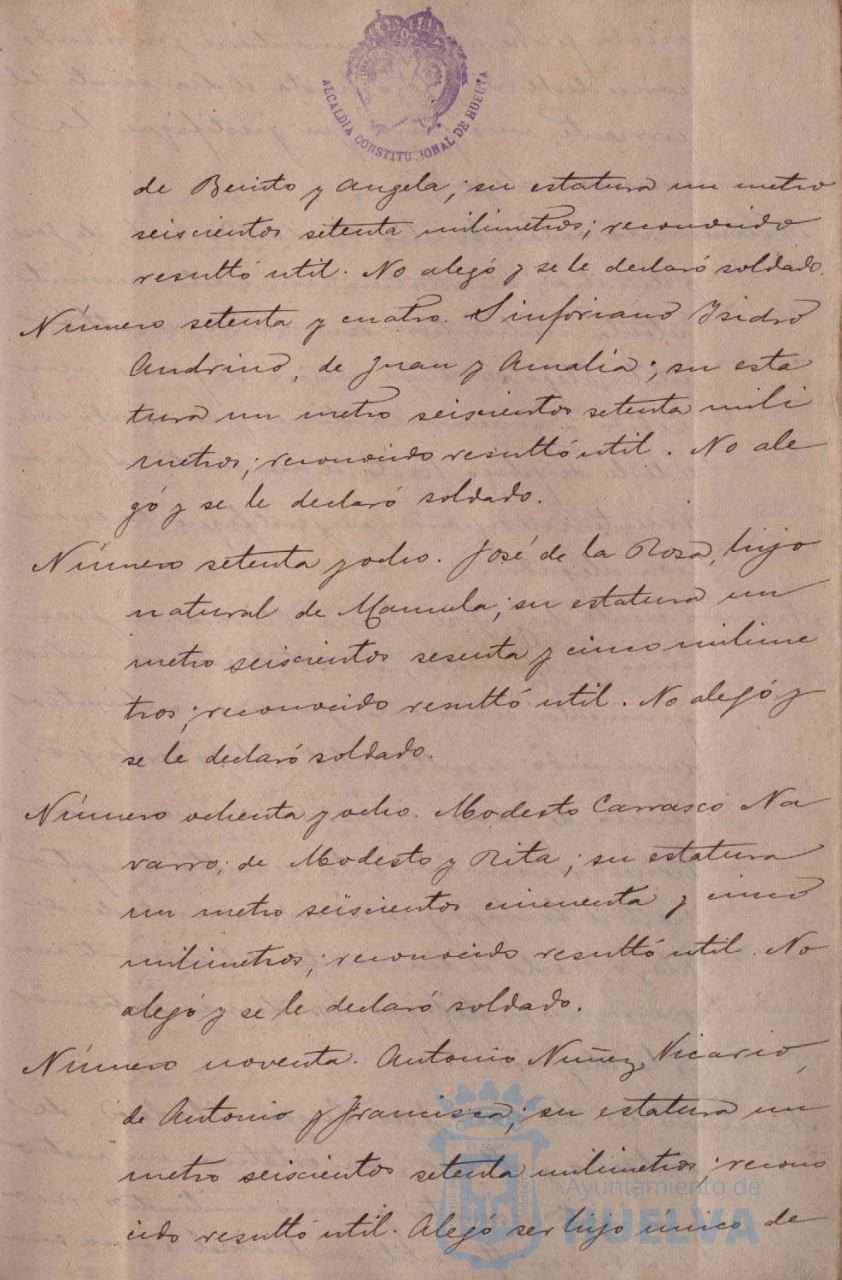 ALCALDIA CONSTITUCIONAL DE HUELVA
de Benito y Angela; su estatura un metro
seiscientos setenta milimetros; reconocido
resultó util. No alegó y se le declaró soldado.
Número setenta y cuatro. Sinforiano Isidro
Andrino, de Juan y Amalia; su esta
tura un metro seiscientos setenta mili
metros; reconocido resultó util. No ale
gó y se le declaró soldado.
Número setenta y ocho. José de la Rosa, hijo
natural de Manuela; su estatura un
metro seiscientos sesenta y cinco milime
tros; reconocido resultó util. No alegó y
se le declaró soldado.
Número ochenta y ocho. Modesto Carrasco Na
varro; de Modesto y Rita; su estatura
un metro seiscientos cincuenta y cinco
milimetros; reconocido resultó util. No
alegó y se le declaró soldado.
Número noventa. Antonio Nuñez Vicario,
de Antonio y Francisca; su estatura un
metro seiscientos setenta milimetros; recono
cido resultó util. Alegó ser hijo único de
Ayuntamiento de
HUELVA